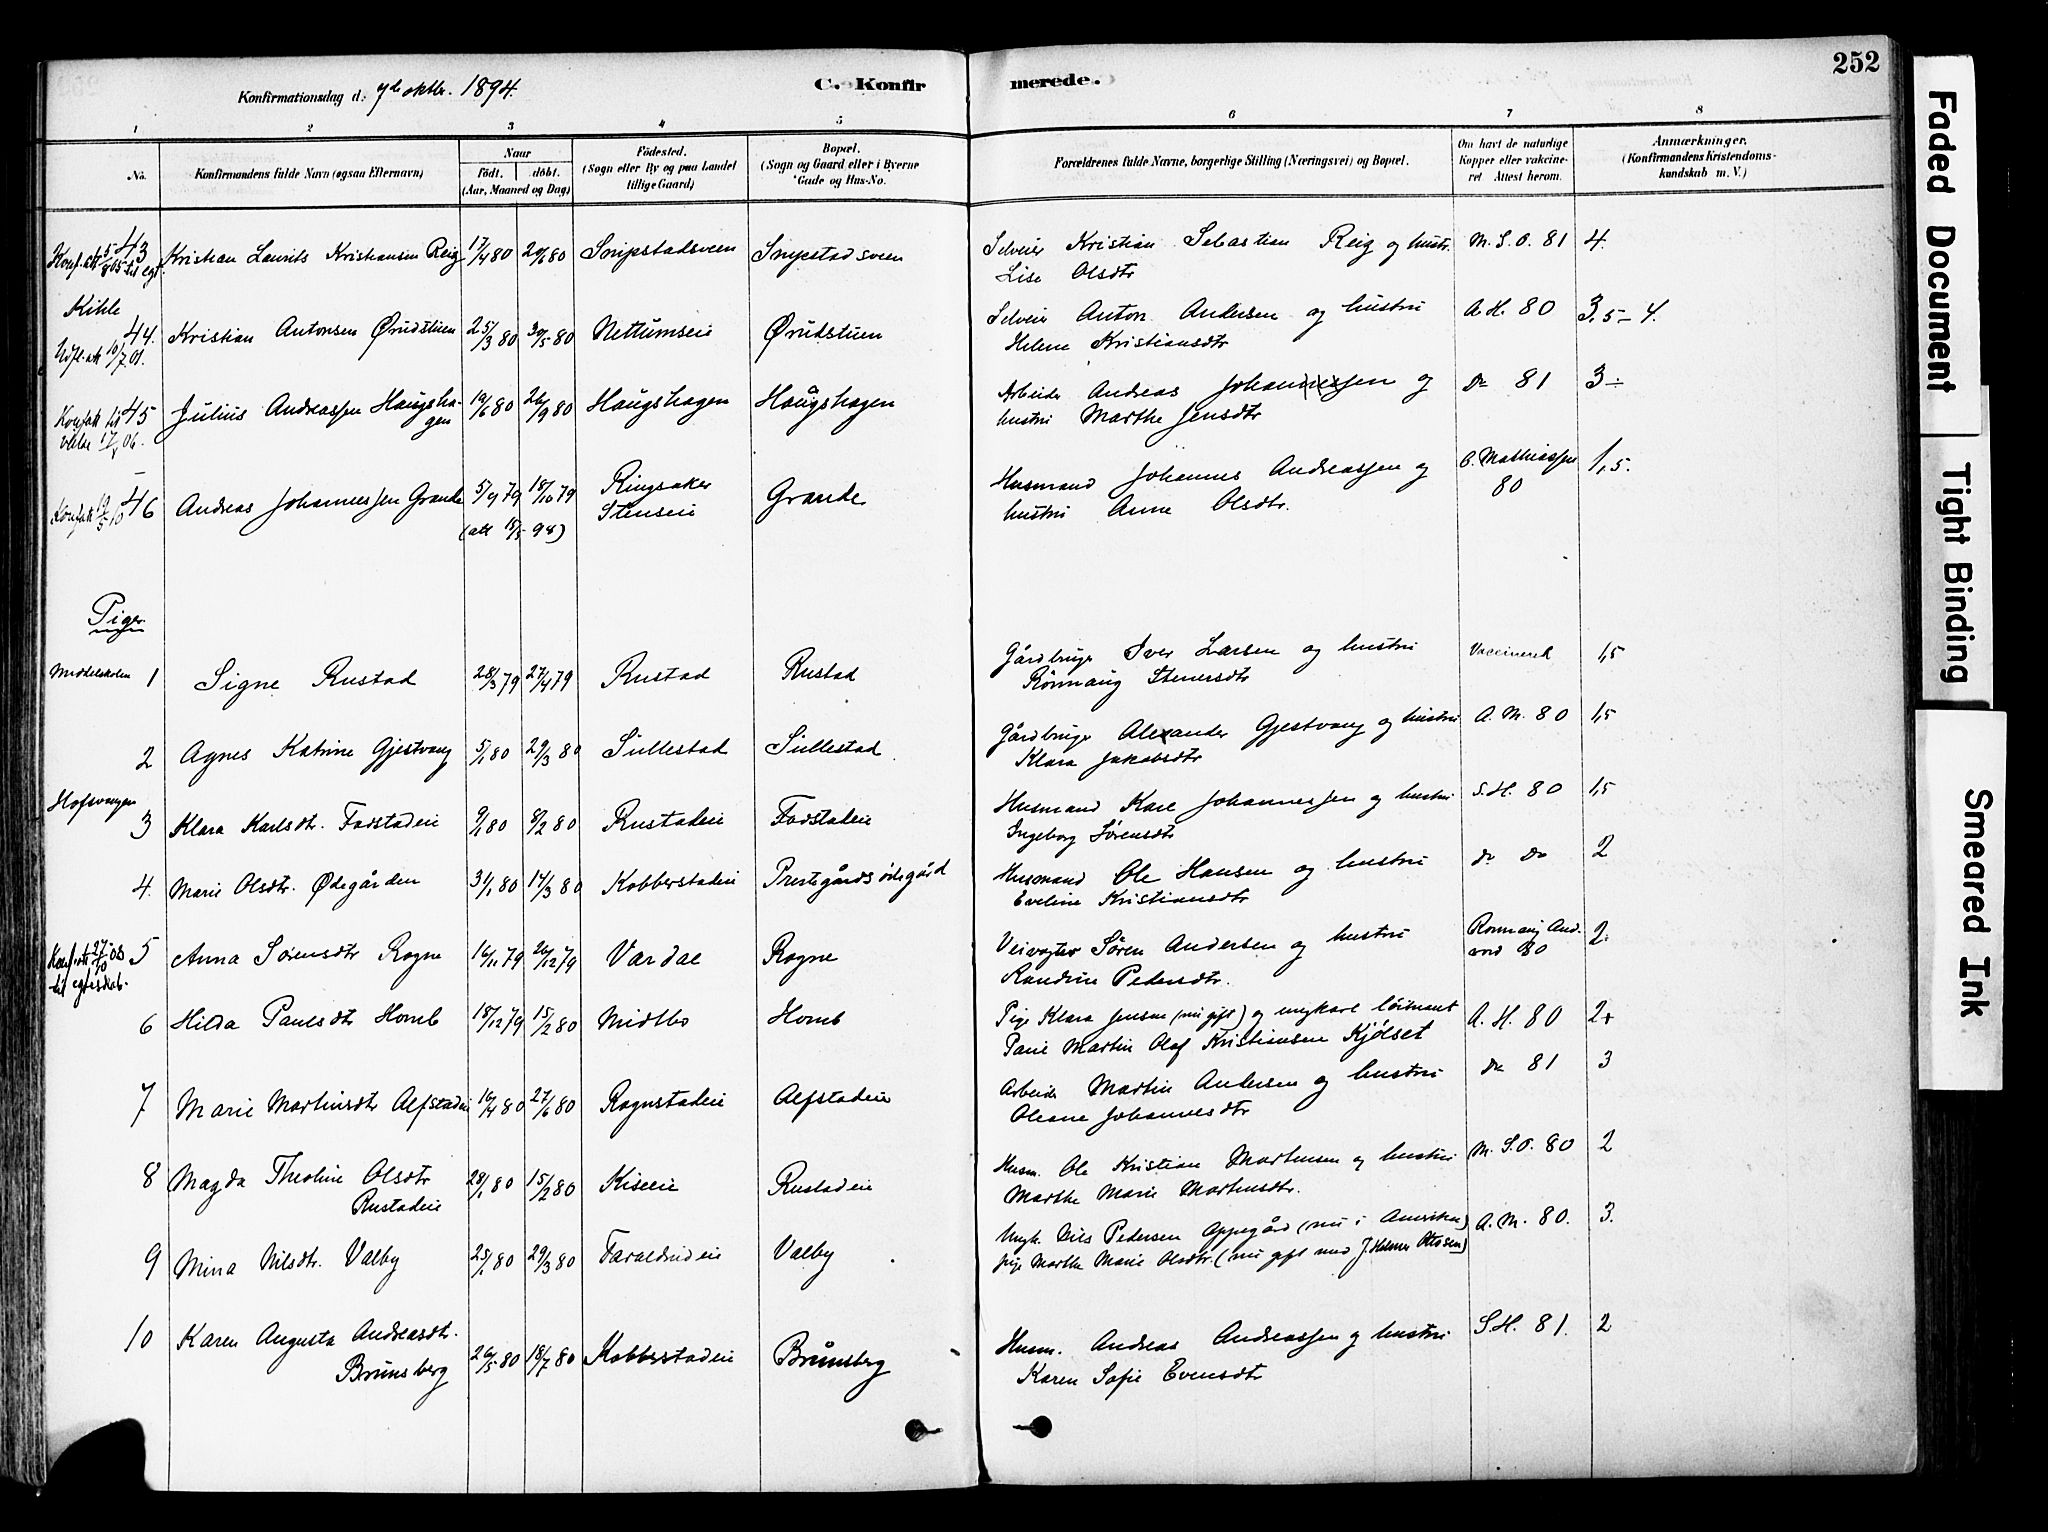 252
Konfirmationsdag d. 7de oktbr. 1894.
C. Konfirmerede.
1 2 3 4 5 6 7 8
No.
Konfirmandens fulde Navn (ogsaa Efternavn)
Naar
födt. döbt.
(Aar, Maaned og Dag)
Födested.
(Sogn eller By og paa Landet
tillige Gaard)
Bopæl.
(Sogn og Gaard eller i Byerne
Gade og Hus-No.
Forældrenes fulde Navne, borgerlige Stilling (Næringsvei) og Bopæl.
Om havt de naturlige
Kopper eller vakcineret Attest herom.
Anmærkninger.
(Konfirmandens Kristendomskundskab m. V.)
43 Kristian Laurits Kristiansen Reig 17/4 80 20/6 80 Snipstadsveen Snipstadsveen Selveier Kristian Sebastian Reig og hustr. M. S. O. 81 4.
Konf.att 5/8 05 til egt.
Lise Olsdtr
Kihle
44. Kristian Antonsen Ørudstuen 25/3 80 30/5 80 Nettumseie Ørudstuen Selveier Anton Andersen og hustru A. H. 80 3,5-4.
Udfl. att 10/7 01.
Helene Kristiansdtr
45 Julius Andreassen Haugshagen 19/6 80 26/9 80 Haugshagen Haugshagen Arbeider Andreas Johannessen og Do 81 3÷
hustru Marthe Jensdtr
46 Andreas Johannessen Grande 5/9 79 18/10 79 Ringsaker Grande Husmand Johannes Andreassen og O. Mathiassen 1,5.
Stenseie hustru Anne Olsdtr. 80
(att 15/5 94)
Piger
Middelskolen 1 Signe Rustad 28/3 79 27/4 79 Rustad Rustad Gårdbruger Iver Larsen og hustru Vaccineret 1,5
Rönnaug Stenersdtr
2 Agnes Katrine Gjestvang 5/1 80 29/3 80 Sillestad Sillestad Gårdbruger Alexander Gjestvang og hustru A. M. 80 1,5
Klara Jakobsdtr
Hofsvangen
3 Klara Karlsdtr. Fodstadeie 9/1 80 8/2 80 Rustadeie Fodstadeie Husmand Karl Johannessen og hustru S. H. 80 1,5
Ingeborg Sörensdtr
4. Marie Olsdtr. Ødegården 31/1 80 14/3 80 Kobberstadeie Prestegårdsødegård Husmand Ole Hansen og hustru do do 2
Eveline Kristiansdtr
5 Anna Sörensdtr Rogne 16/11 79 26/12 79 Vardal Rogne Veivogter Sören Andersen og hustru 80 2.
til egteskab.
Randine Pedersdtr.
6 Hilda Paulsdtr Homb 18/12 79 15/2 80 Midtbo Homb Pige Klara Jensen (nu gift) og ungkarl löitnant A. H. 80 2+
Paul Martin Olaf Kristiansen Kjölset
7 Marie Martinsdtr Alfstadeie 16/4 80 27/6 80 Rognstadeie Alfstadeie Arbeider Martin Andersen og hustru do 81 3
Oleane Johannesdtr
8 Magda Theoline Olsdtr 28/1 80 15/2 80 Kiseeie Rustadeie Husm. Ole Kristian Mortensen og hustru M. S. O. 80 2
Rustadeie Marthe Marie Mortensdtr.
9 Mina Nilsdtr. Valby 25/1 80 29/3 80 Faraldrudeie Valby Ungk. Nils Pedersen Oppegård (nu i Amerika) A. M. 80. 3.
pige Marthe Marie Olsdtr. (nu gift med J. Helmer Ottosen)
10 Karen Augusta Andreasdtr. 26/5 80 18/7 80 Kobberstadeie Brunsberg Husm. Andreas Andreassen og hustru S. H. 81. 2
Brunsberg Karen Sofie Evensdtr
Faded Document
Tight Binding
Smeared Ink